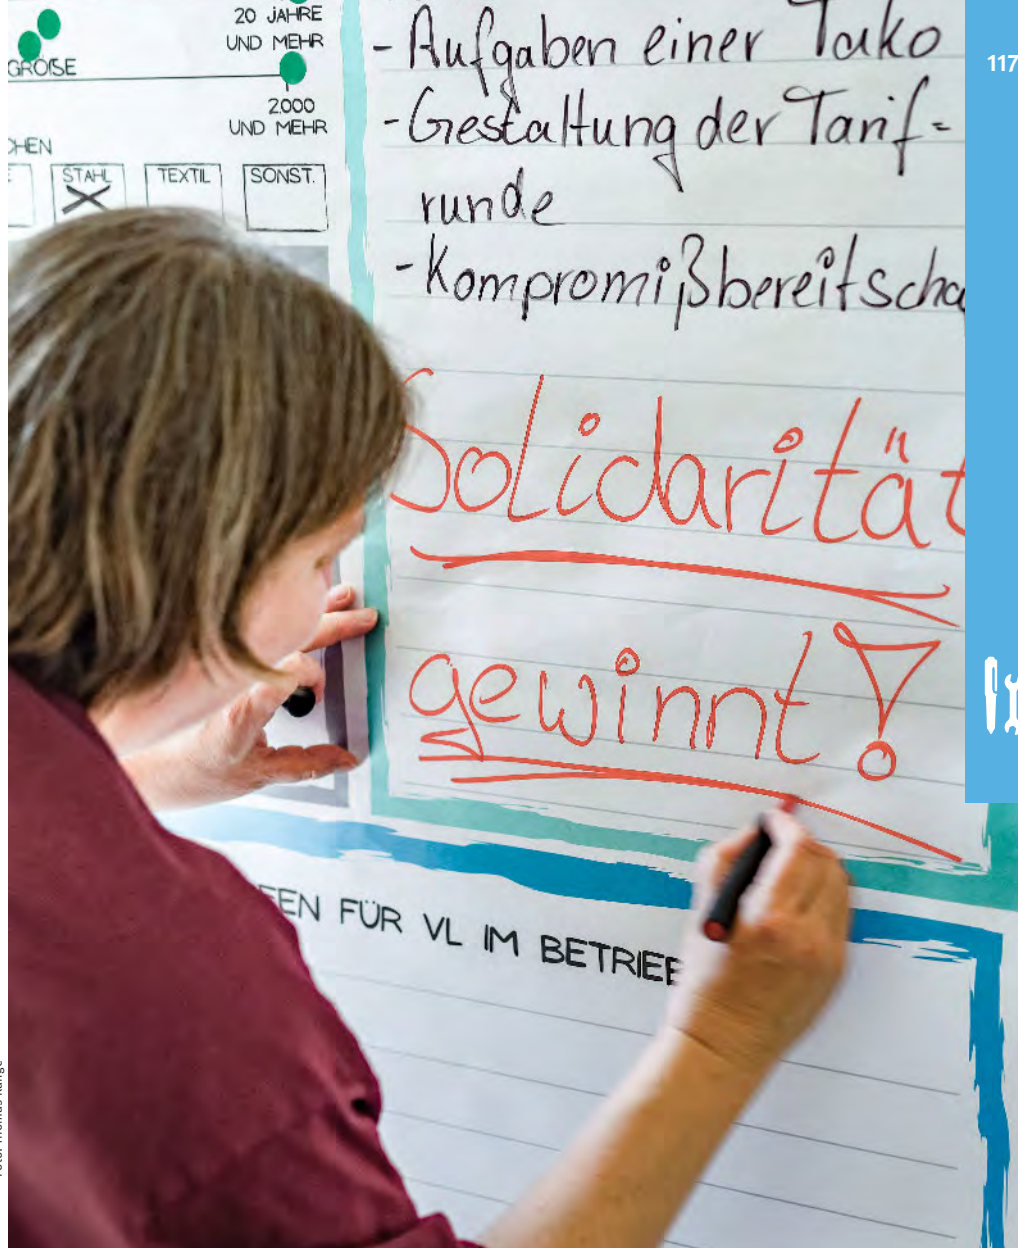 20 JAHRE
UND MEHR
GRÖßE
2000
UND MEHR
STAHL
TEXTIL
SONST.
- Aufgaben einer Tako
- Gestaltung der Tarif-
runde
- Kompromißbereitscha
Solidarität
gewinnt!
FÜR VL IM BETRIEB
117